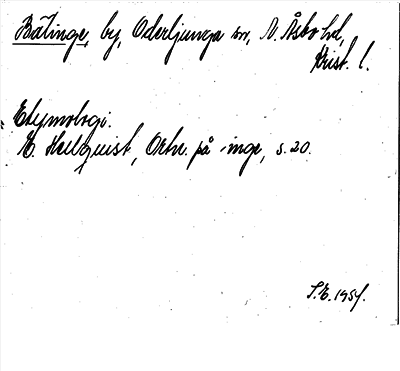 Bälinge, by, Oderljunga sn, N. Åsbo hd,
Krist. l.
Etymologi.
E. Hellquist, Ortn. på -inge, s. 20.
S.E. 1954.